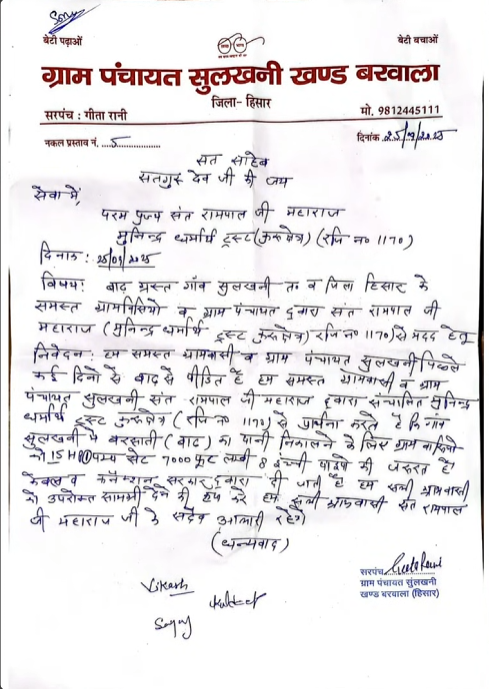 बेटी पढ़ाओं
बेटी बचाओं
ग्राम पंचायत सुलखनी खण्ड बरवाला
जिला- हिसार
सरपंच : गीता रानी
मो. 9812445111
नकल प्रस्ताव नं. ....5....
दिनांक 25/9/2025
सत साहेब
सतगुरु देव जी की जय
सेवा में,
परम पुज्य संत रामपाल जी महाराज
मुनिन्द्र धर्मार्थ ट्रस्ट (कुरुक्षेत्र) (रजि न० 1170)
दिनांक : 25/09/2025
विषय: बाढ़ ग्रस्त गाँव सुलखनी त० व जिला हिसार के
समस्त ग्रामवासियो व ग्राम पंचायत द्वारा संत रामपाल जी
महाराज (मुनिन्द्र धर्मार्थ ट्रस्ट कुरुक्षेत्र) रजि न० 1170) से मदद हेतु
निवेदन: हम समस्त ग्रामवासी व ग्राम पंचायत सुलखनी पिछले
कई दिनो से बाढ से पीडित है हम समस्त ग्रामवासी व ग्राम
पंचायत सुलखनी संत रामपाल जी महाराज द्वारा संचालित मुनिन्द्र
धर्मार्थ ट्रस्ट कुरुक्षेत्र (रजि न० 1170) से प्रार्थना करते है कि गांव
सुलखनी मे बरसाती (बाढ) का पानी निकालने के लिए ग्राम वासियो
को 15 HP पम्प सेट 7000 फूट लम्बी 8 इन्ची पाइप की जरूरत है
केबल व कनैक्शन सरकार द्वारा दी जाती है हम सभी ग्रामवासी
को उपरोक्त सामग्री देने की कृपा करे हम सभी ग्रामवासी संत रामपाल
जी महाराज जी के सदैव आभारी रहेगे
(धन्यवाद)
Vikash
सरपंच Geeta Rani
ग्राम पंचायत सुंलखनी
खण्ड बरवाला (हिसार)